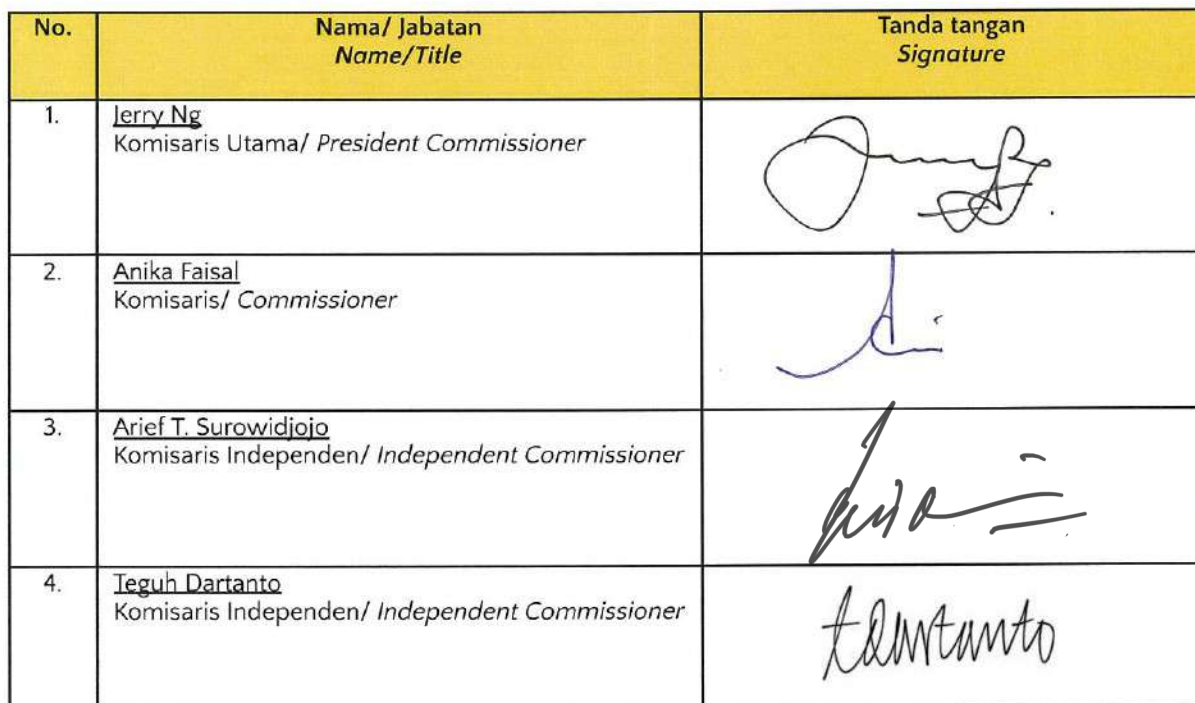 No.
Nama/ Jabatan
Name/Title
Tanda tangan
Signature
1.
Jerry Ng
Komisaris Utama/ President Commissioner
2.
Anika Faisal
Komisaris/ Commissioner
3.
Arief T. Surowidjojo
Komisaris Independen/ Independent Commissioner
4.
Teguh Dartanto
Komisaris Independen/ Independent Commissioner
tdartanto